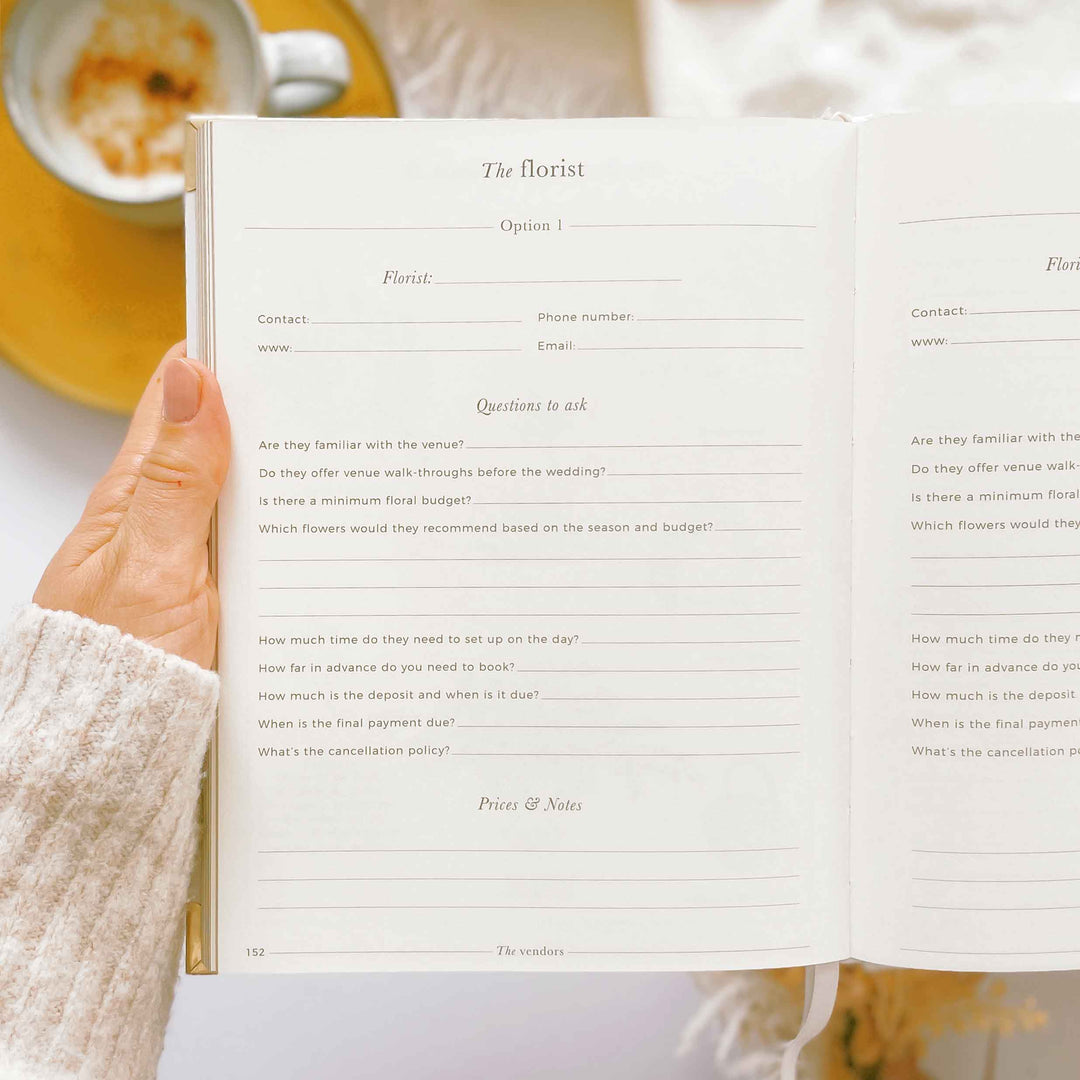 The florist
Option 1
Florist:
Contact:
Phone number:
www:
Email:
Questions to ask
Are they familiar with the venue?
Do they offer venue walk-throughs before the wedding?
Is there a minimum floral budget?
Which flowers would they recommend based on the season and budget?
How much time do they need to set up on the day?
How far in advance do you need to book?
How much is the deposit and when is it due?
When is the final payment due?
What's the cancellation policy?
Prices & Notes
152
The vendors
Contact:
www:
Are they familiar with the
Do they offer venue walk-
Is there a minimum floral
Which flowers would they
How much time do they
How far in advance do
How much is the deposit
When is the final
What's the cancellation